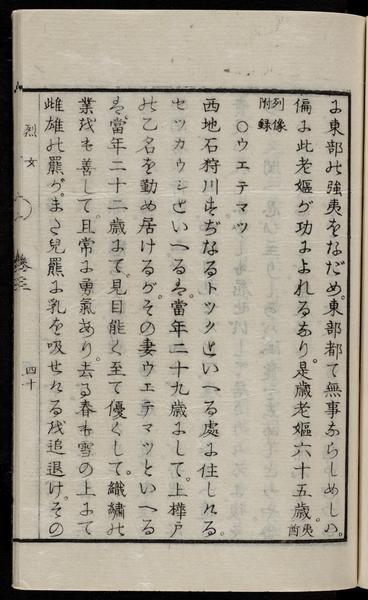 に東部の強夷をなだめ。東部都て無事ならしめしハ。
偏に此老嫗が功によれるなり。是歳老嫗六十五歳。夷酋
列像
附録
○ウエテマツ
西地石狩川すぢなるトツクといへる處に住しける。
セツカウシといへるは。當年二十九歳にして。上樺戸
の乙名を勤め居けるが。その妻ウエテマツといへる
は。當年二十二歳にて。見目能く至て優くして。織繍の
業をも善して。且常に勇氣あり。去る春も雪の上にて
雌雄の羆が。まさ兒羆に乳を吸せけるを追退け。その
烈女
巻三
四十